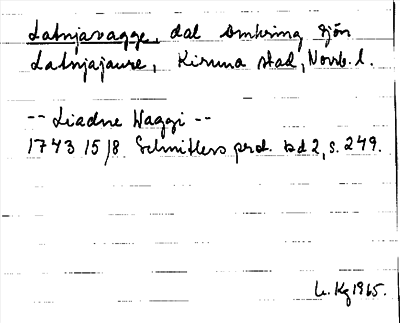 Latnjavagge, dal omkring sjön
Latnjajaure, Kiruna stad, Norrb. l.
-- Liadne Waggi --
1743 15/8 Schnitlers prot. bd 2, s. 249.
L. Kg 1965.